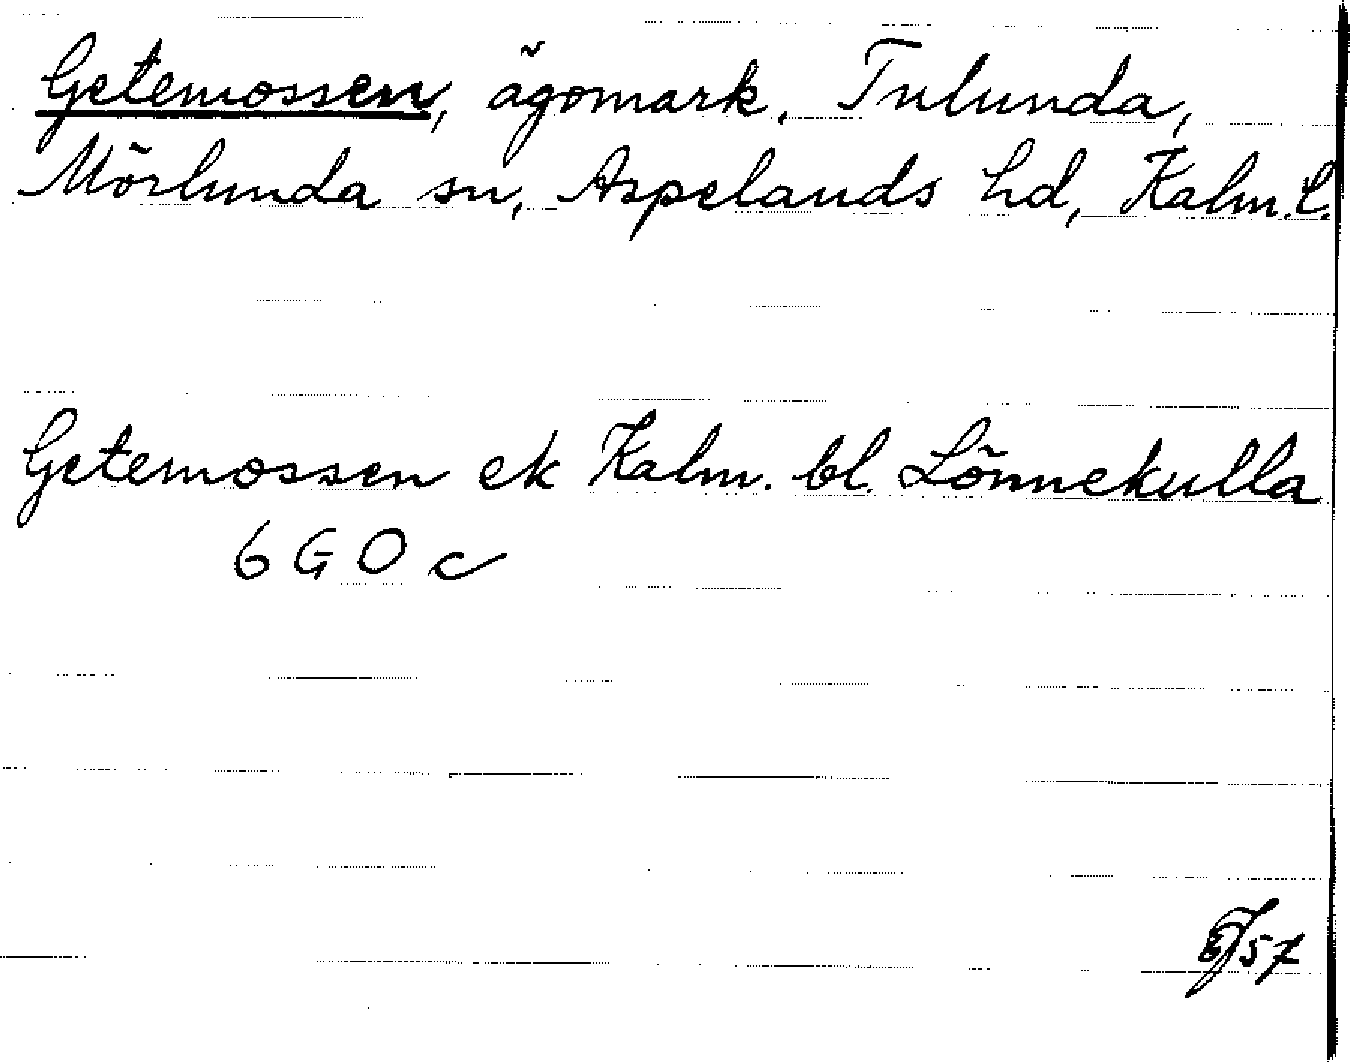 Getemossen, ägomark, Tulunda,
Mörlunda sn, Aspelands hd, Kalm. l.
Getemossen ek Kalm. bl. Lönnekulla
6 G O c
57